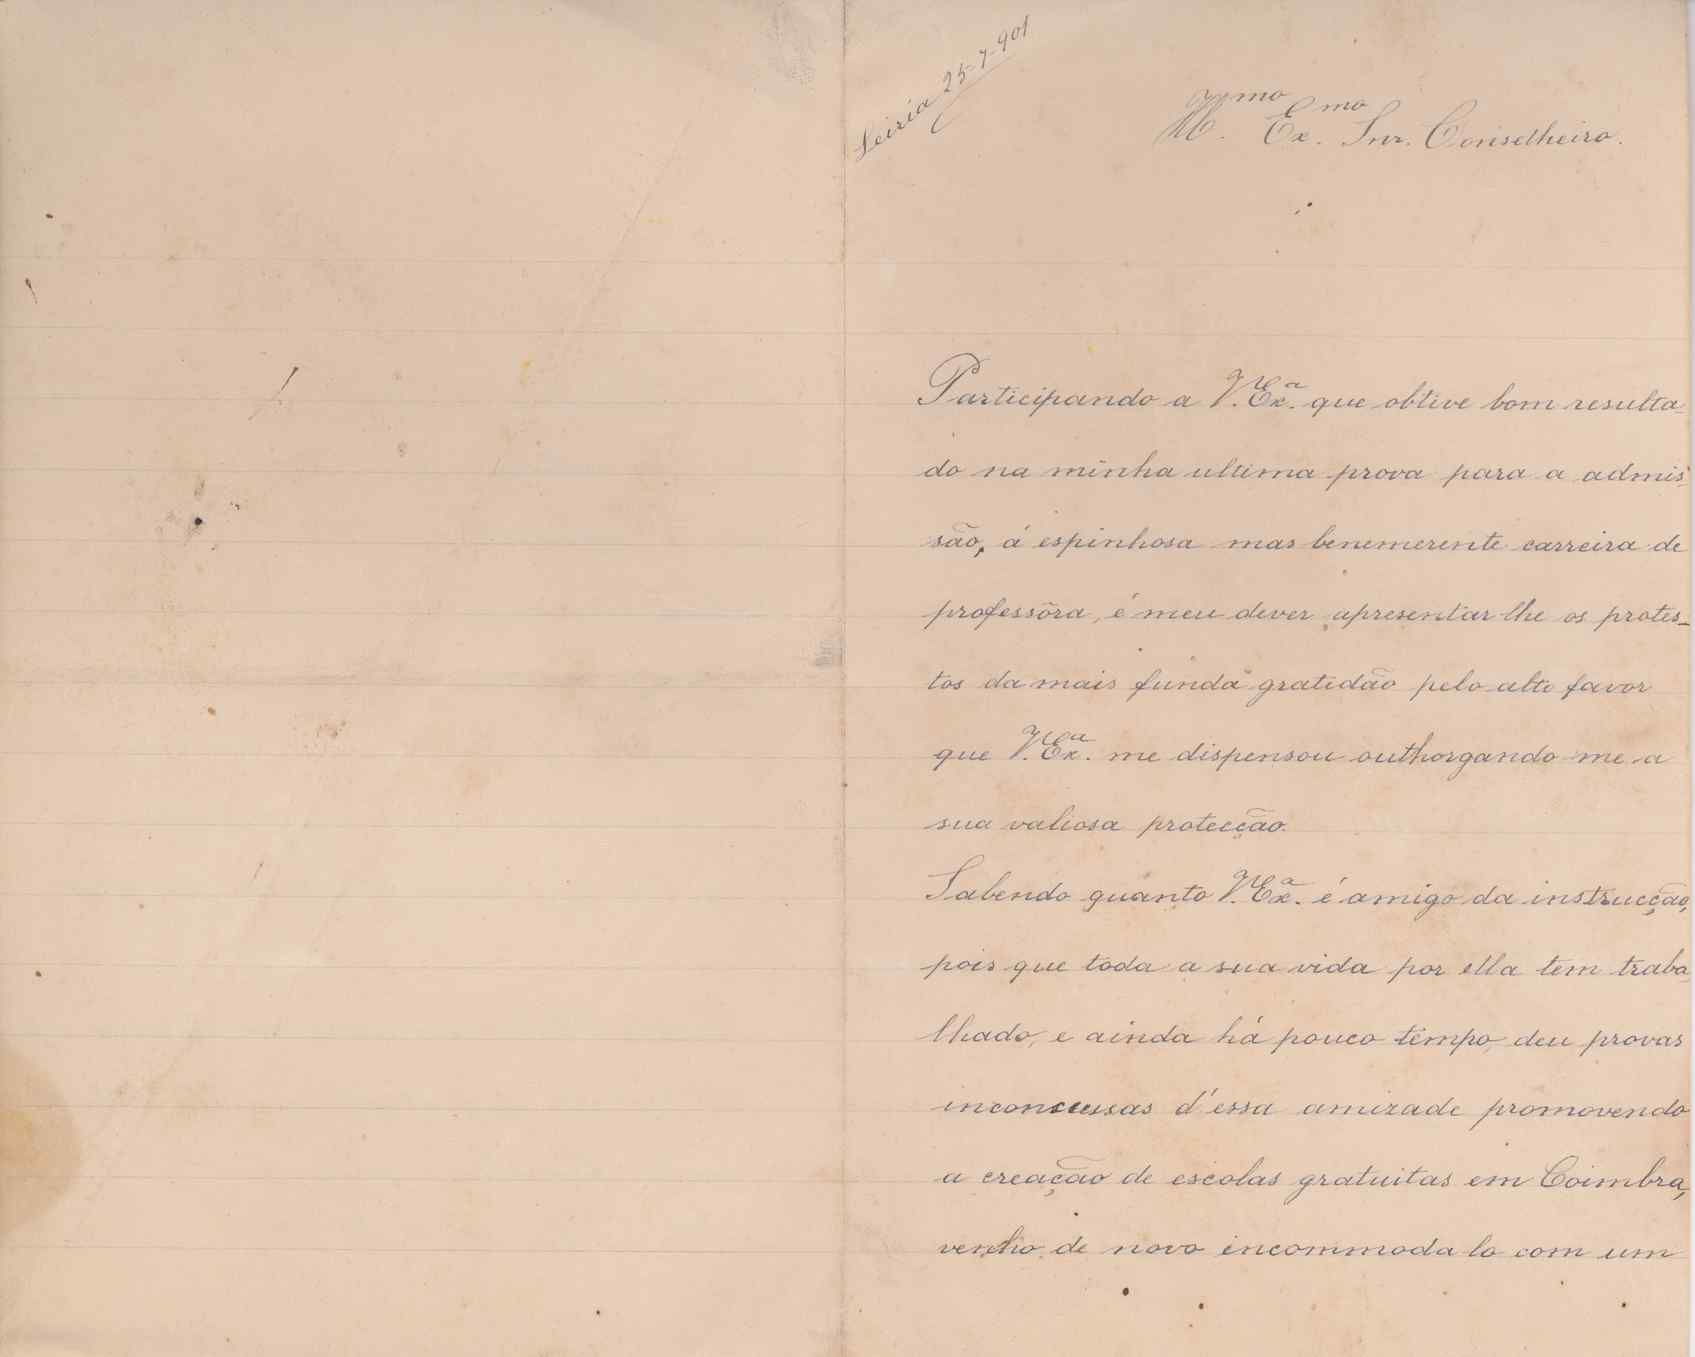 Leiria 25-7-901
Ill.mo Ex.mo Snr. Conselheiro.
Participando a V. Ex.a que obtive bom resulta-
do na minha ultima prova para a admis-
são, á espinhosa mas benemerente carreira de
professôra, é meu dever apresentar-lhe os protes-
tos da mais funda gratidão pelo alto favor
que V. Ex.a me dispensou outhorgando-me a
sua valiosa protecção.
Sabendo quanto V. Ex.a é amigo da instrucção,
pois que toda a sua vida por ella tem traba-
lhado, e ainda há pouco tempo, deu provas
inconcussas d'essa amizade promovendo
a creação de escolas gratuitas em Coimbra,
venho de novo incommoda-lo com um